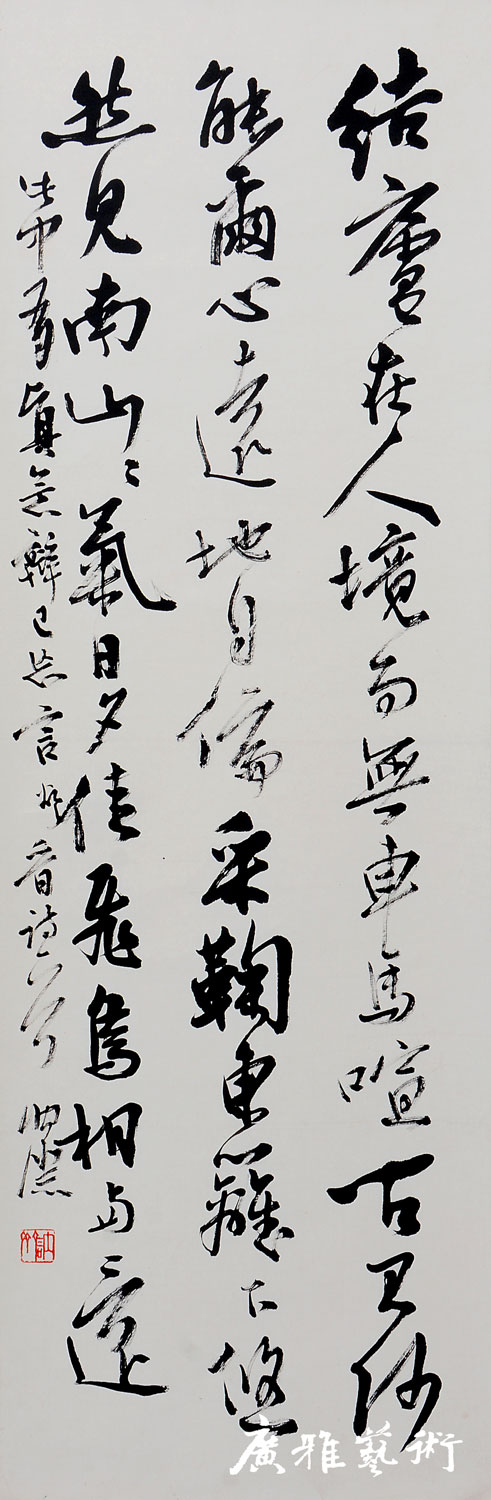 結廬在人境而無車馬喧問君何
能爾心遠地自偏采鞠東籬下悠
然見南山〻氣日夕佳飛鳥相與還
此中有真意辯已忘言 晉詩一首
廣雅藝術